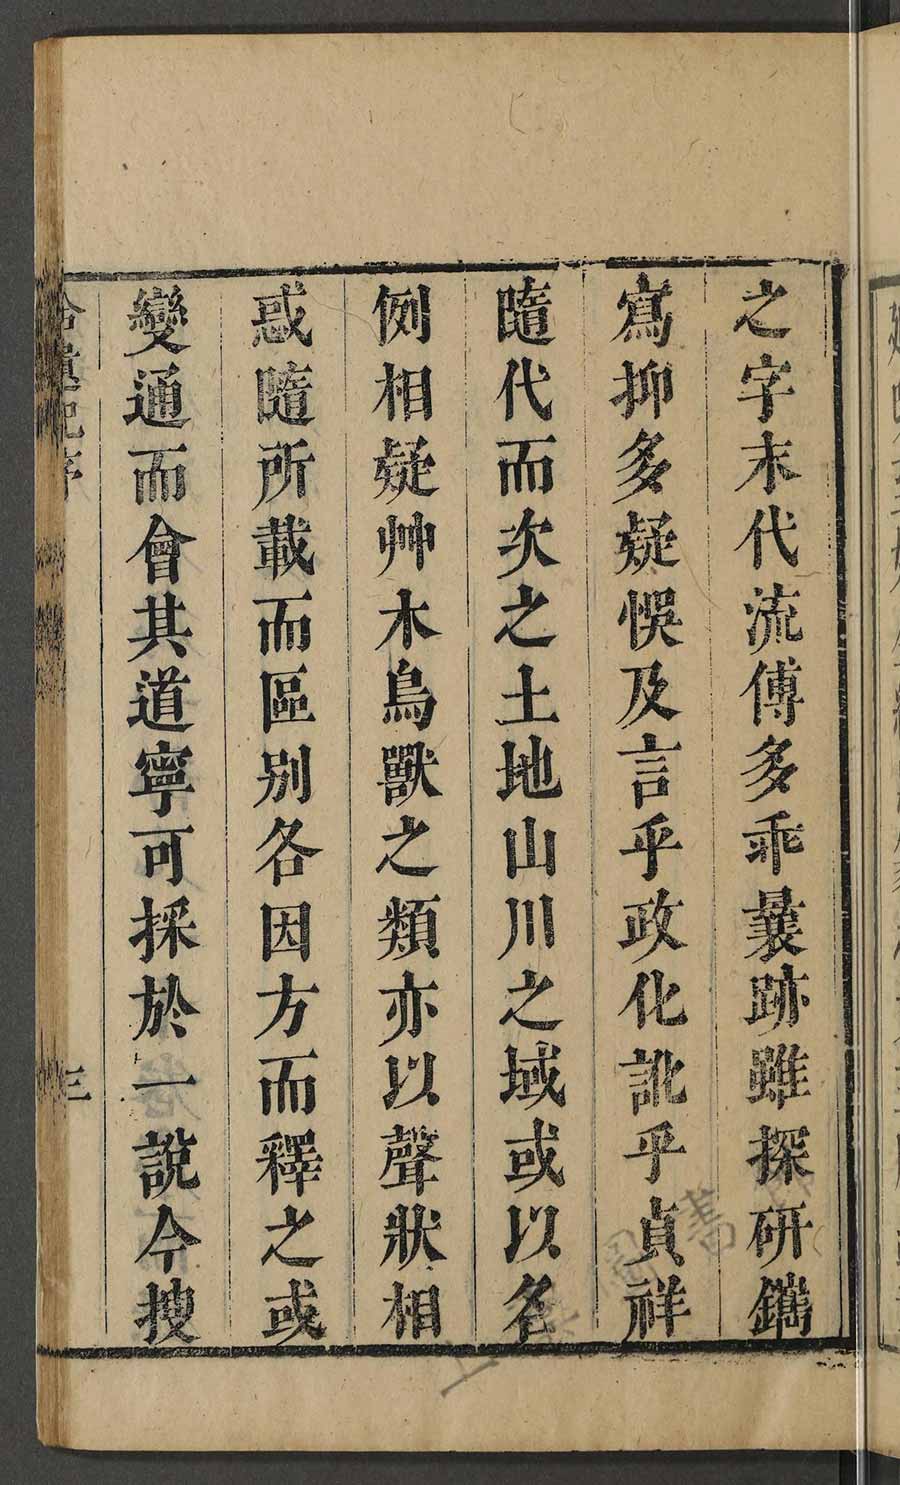 之字末代流傳多乖曩跡雖探研鐫
寫抑多疑悞及言乎政化訛乎貞祥
隨代而次之土地山川之域或以名
例相疑艸木鳥獸之類亦以聲狀相
惑隨所載而區別各因方而釋之或
變通而會其道寧可採於一說今搜
拾遺記序
三